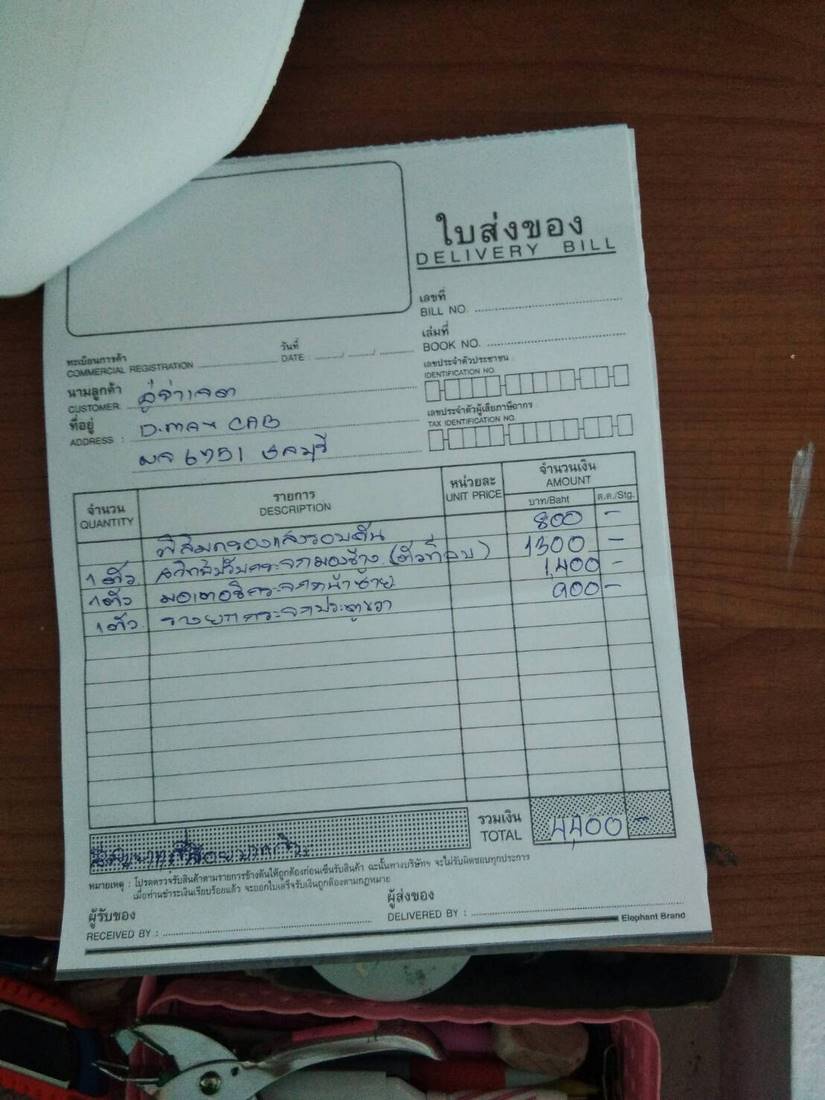 ใบส่งของ
DELIVERY BILL
เลขที่
BILL NO.
เล่มที่
BOOK NO.
ทะเบียนการค้า
COMMERCIAL REGISTRATION
วันที่
DATE :
เลขประจำตัวประชาชน :
IDENTIFICATION NO.
นามลูกค้า
CUSTOMER
เลขประจำตัวผู้เสียภาษีอากร
TAX IDENTIFICATION NO.
ที่อยู่ D.max CAB
ADDRESS :
6751 ชลบุรี
จำนวน รายการ หน่วยละ จำนวนเงิน
QUANTITY DESCRIPTION UNIT PRICE AMOUNT
บาท/Baht ส.ต./Stg.
ฟิล์มกรองแสงรอบคัน 800 -
1 ตัว สวิทช์ปรับกระจกมองข้าง (ตัวที่ลบ) 1300 -
1 ตัว มอเตอร์กระจกหน้าซ้าย 1,400 -
1 ตัว รางยกกระจกประตูขวา 900 -
รวมเงิน
TOTAL 4400 -
หมายเหตุ : โปรดตรวจรับสินค้าตามรายการข้างต้นให้ถูกต้องก่อนเซ็นรับสินค้า ฉะนั้นทางบริษัทฯ จะไม่รับผิดชอบทุกประการ
เมื่อท่านชำระเงินเรียบร้อยแล้ว จะออกใบเสร็จรับเงินถูกต้องตามกฎหมาย
ผู้รับของ ผู้ส่งของ
RECEIVED BY : DELIVERED BY :
Elephant Brand